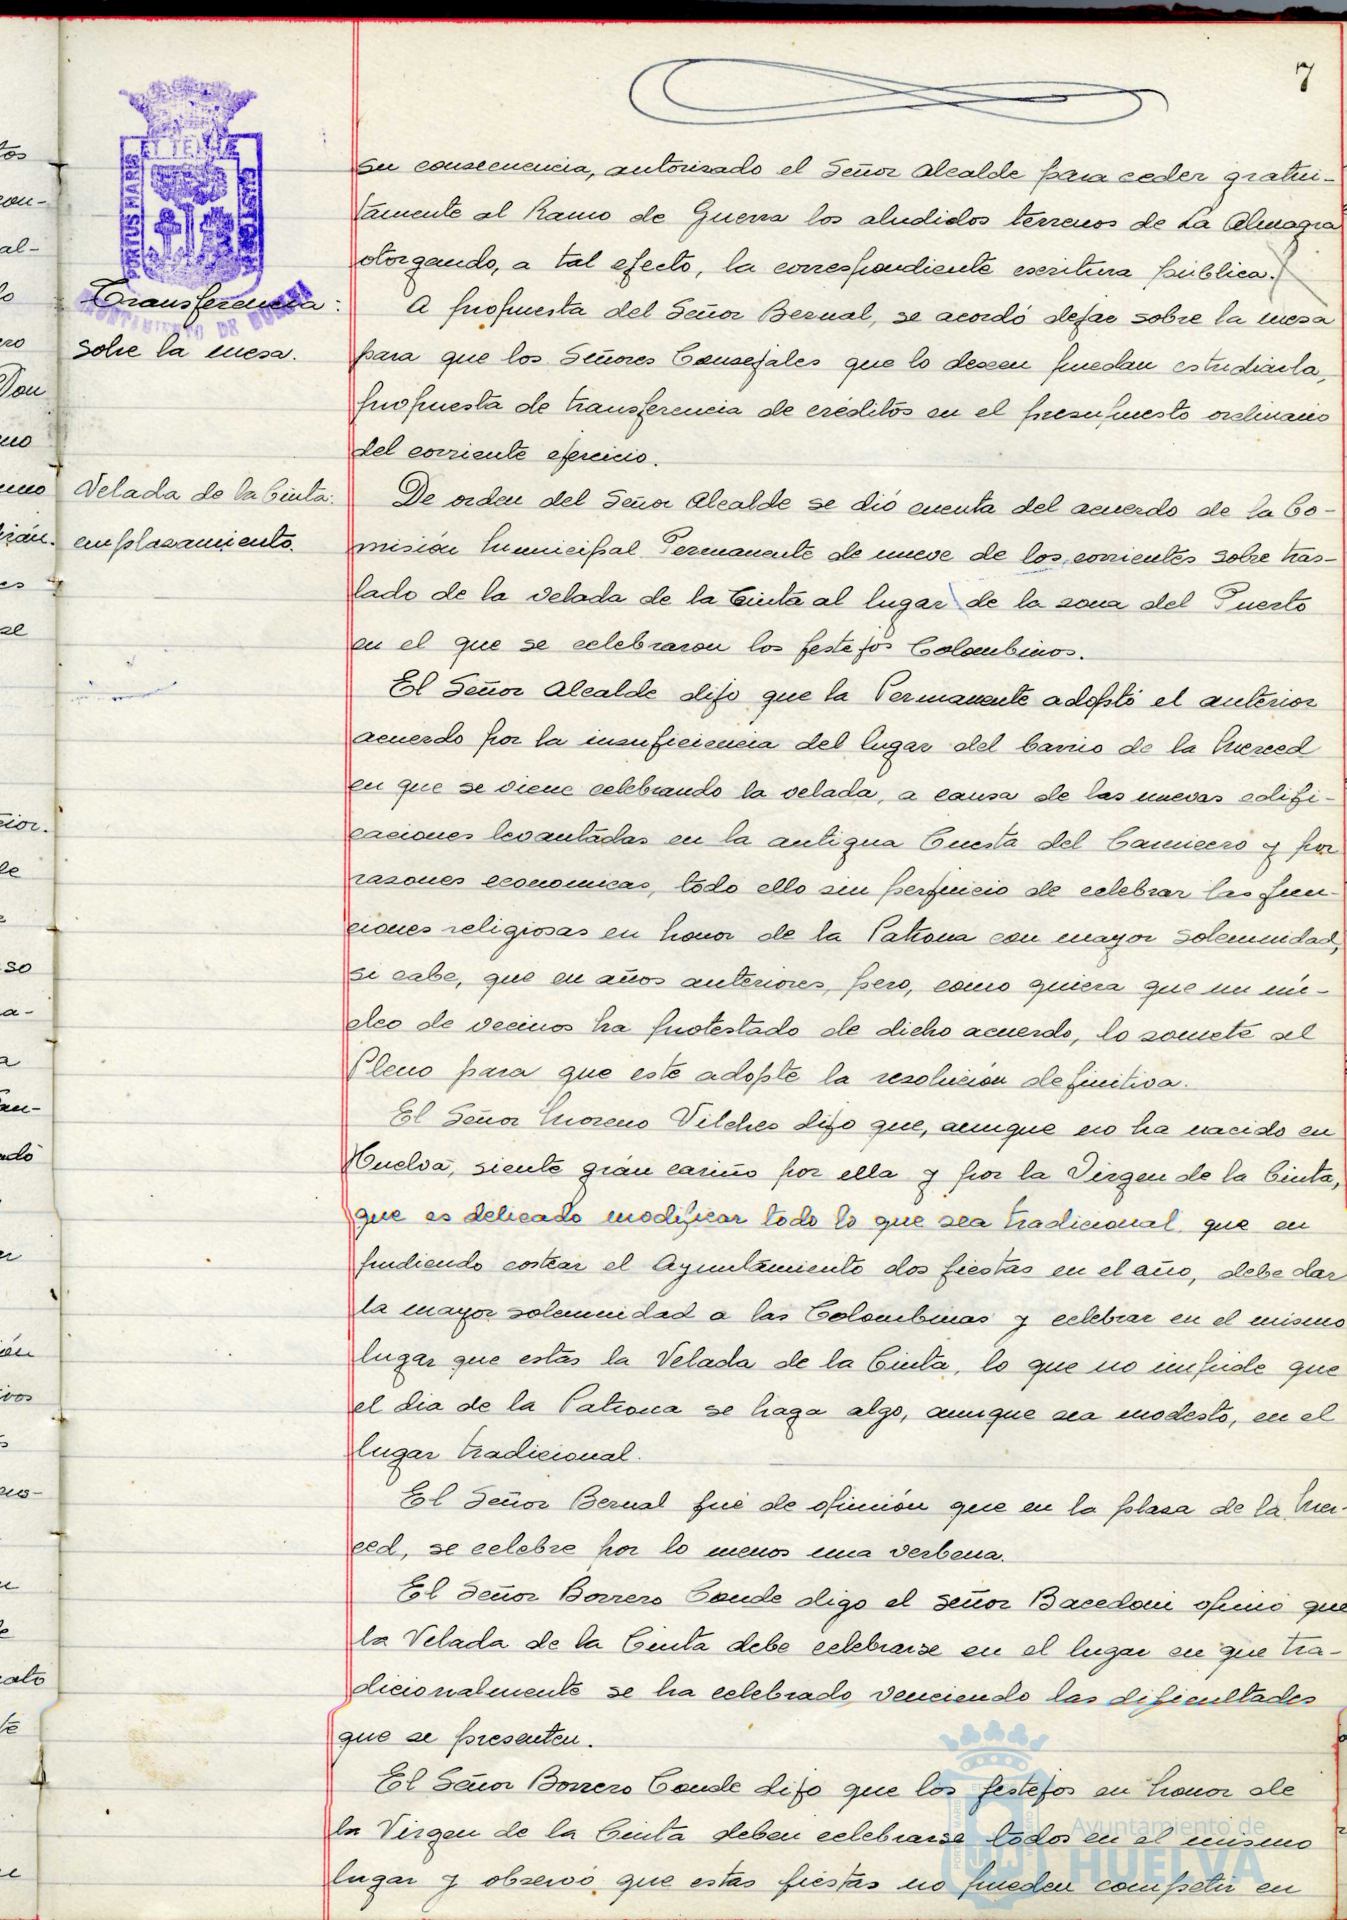 7
su consecuencia, autorizado el Señor Alcalde para ceder gratui-
tamente al Ramo de Guerra los aludidos terrenos de La Almagra
otorgando, a tal efecto, la correspondiente escritura pública.
Transferencia:
sobre la mesa.
A propuesta del Señor Bernal, se acordó dejar sobre la mesa
para que los Señores Consejales que lo deseen puedan estudiarla,
propuesta de transferencia de créditos en el presupuesto ordinario
del corriente ejercicio.
Velada de la Cinta:
emplazamiento.
De orden del Señor Alcalde se dió cuenta del acuerdo de la Co-
misión Municipal Permanente de nueve de los corrientes sobre tras-
lado de la velada de la Cinta al lugar de la zona del Puerto
en el que se celebraron los festejos Colombinos.
El Señor Alcalde dijo que la Permanente adoptó el anterior
acuerdo por la insuficiencia del lugar del barrio de la Merced
en que se viene celebrando la velada, a causa de las nuevas edifi-
caciones levantadas en la antigua Cuesta del Carnicero y por
razones economicas, todo ello sin perjuicio de celebrar las fun-
ciones religiosas en honor de la Patrona con mayor solemnidad,
si cabe, que en años anteriores, pero, como quiera que un nú-
cleo de vecinos ha protestado de dicho acuerdo, lo somete al
Pleno para que este adopte la resolución definitiva.
El Señor Moreno Vilches dijo que, aunque no ha nacido en
Huelva, siente grán cariño por ella y por la Virgen de la Cinta,
que es delicado modificar todo lo que sea tradicional, que en
pudiendo costear el Ayuntamiento dos fiestas en el año, debe dar
la mayor solemnidad a las Colombinas y celebrar en el mismo
lugar que estas la Velada de la Cinta, lo que no impide que
el dia de la Patrona se haga algo, aunque sea modesto, en el
lugar tradicional.
El Señor Bernal fué de opinión que en la plaza de la Mer-
ced, se celebre por lo menos una verbena.
El Señor Borrero Conde digo el señor Bacedoni opinó que
la Velada de la Cinta debe celebrarse en el lugar en que tra-
dicionalmente se ha celebrado venciendo las dificultades
que se presenten.
El Señor Borrero Conde dijo que los festejos en honor de
la Virgen de la Cinta deben celebrarse todos en el mismo
lugar y observó que estas fiestas no pueden competir en
PORTUS MARIS ET TERRE CUSTODIA
AYUNTAMIENTO DE HUELVA
Ayuntamiento de
HUELVA